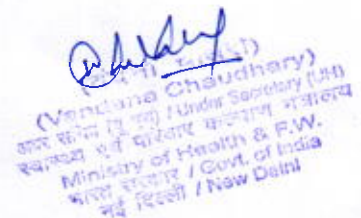 (Vandana Chaudhary)
अवर सचिव / Under Secretary (UH)
स्वास्थ्य एवं परिवार कल्याण मंत्रालय
Ministry of Health & F.W.
भारत सरकार / Govt. of India
नई दिल्ली / New Delhi